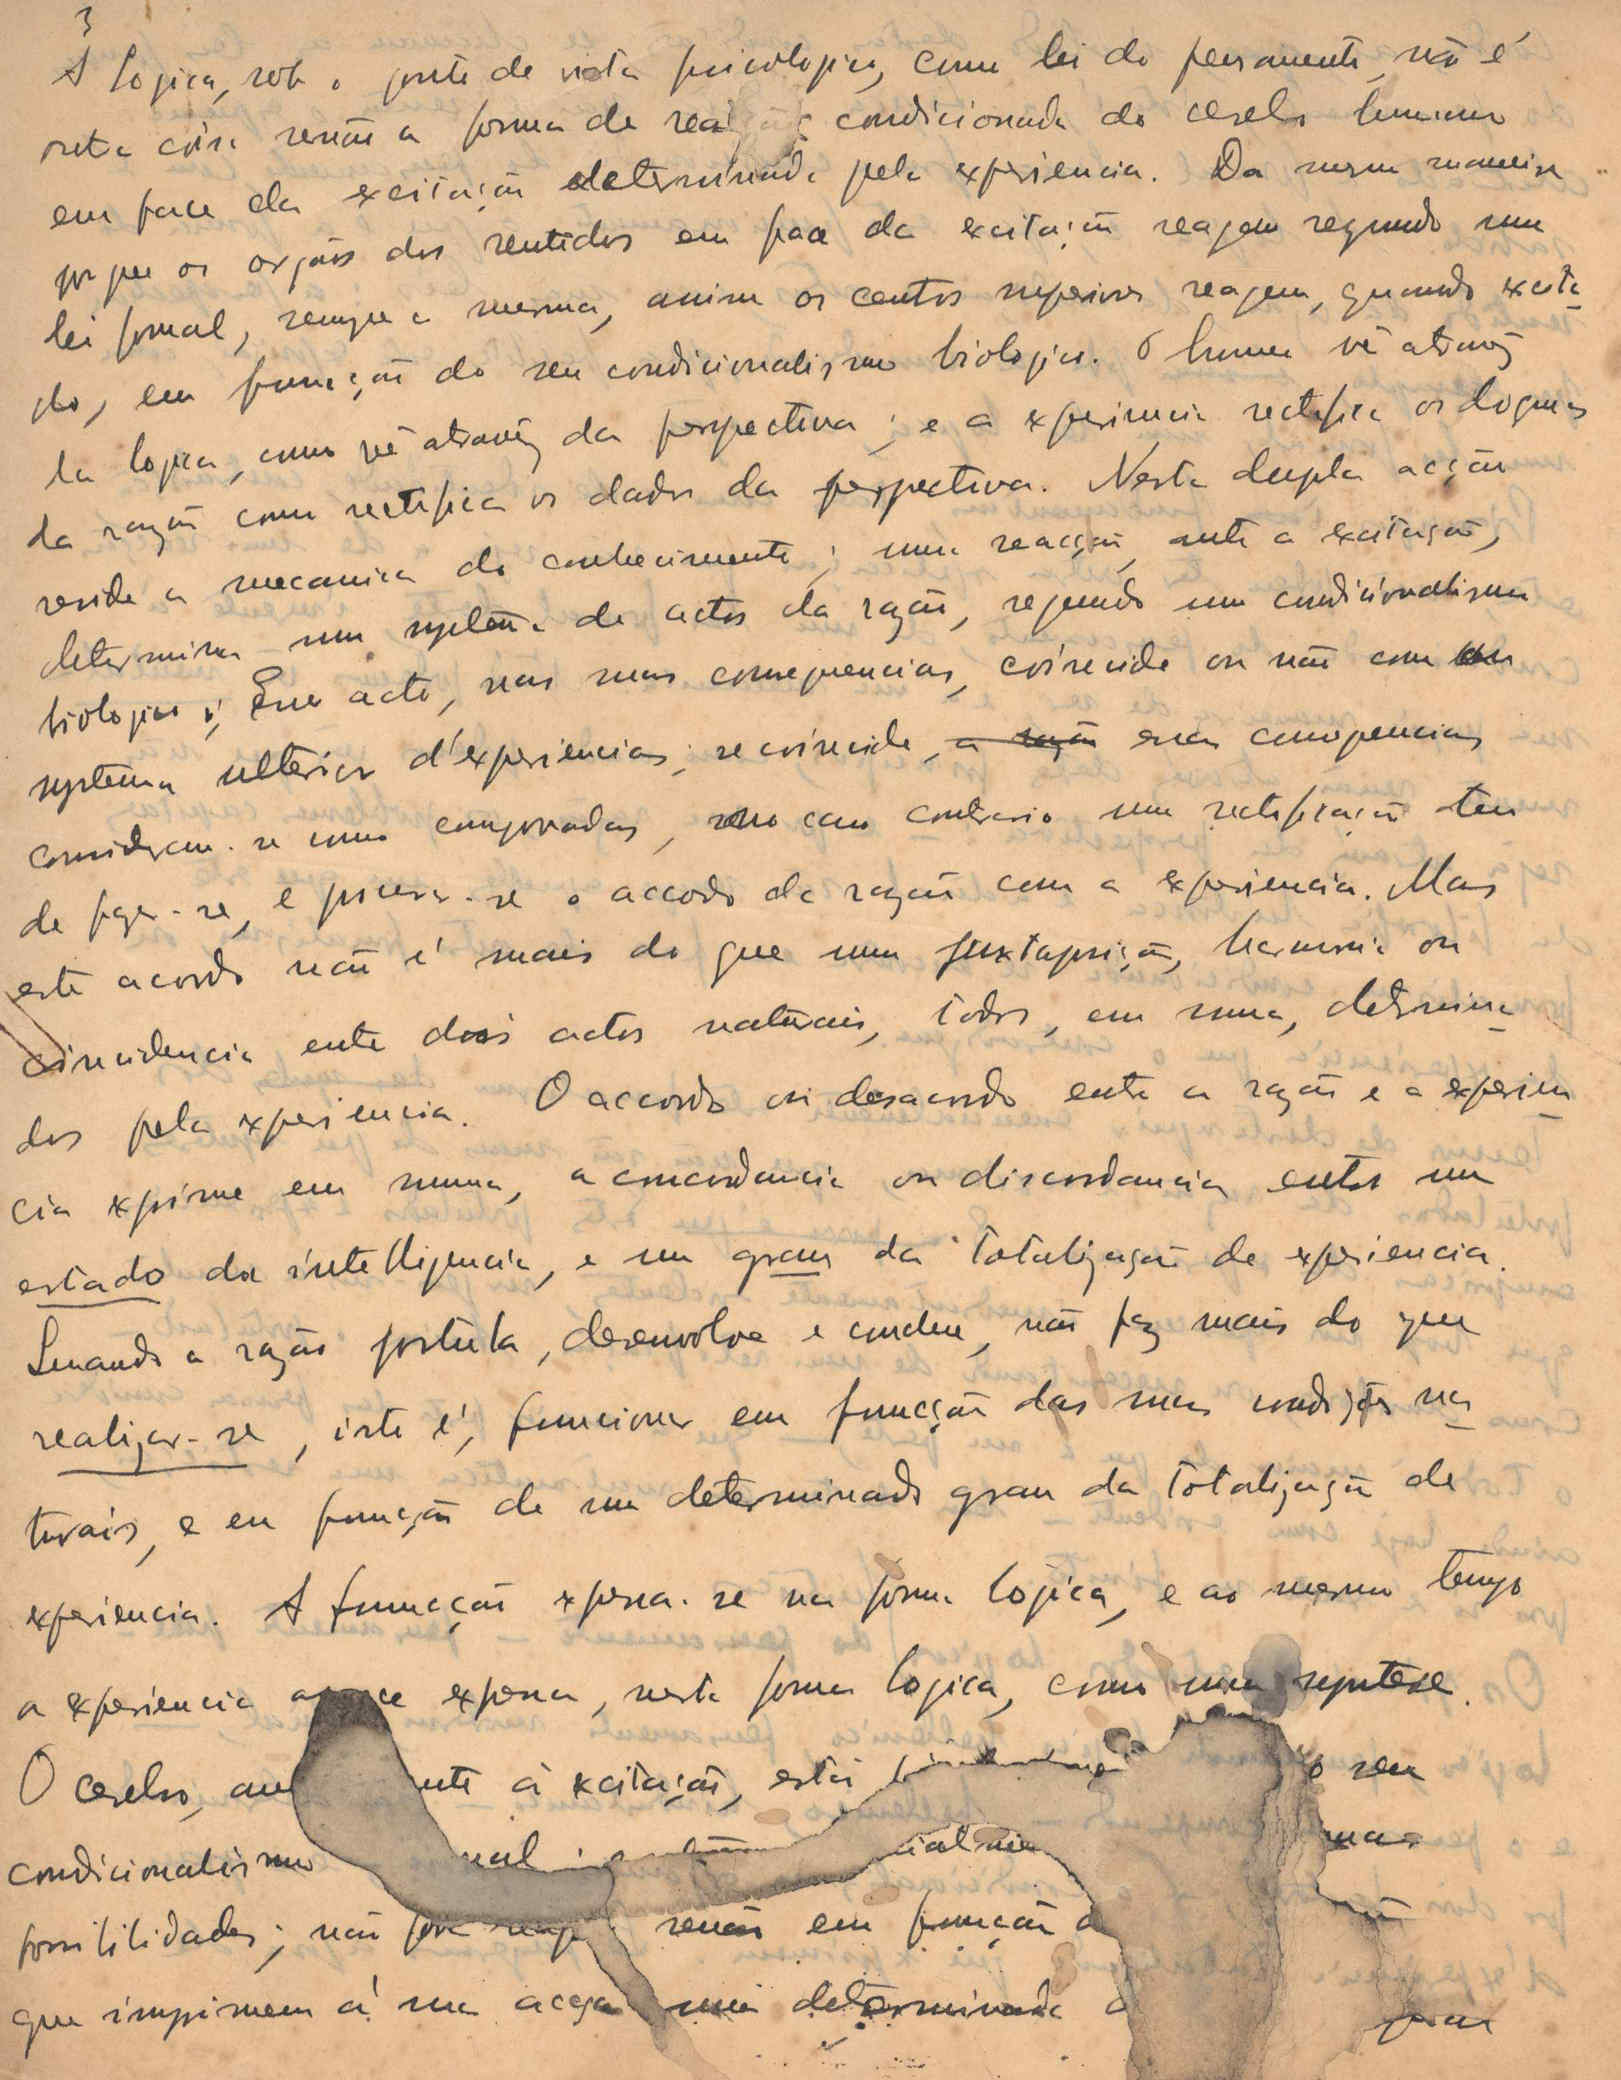 3
A logica, sob o ponto de vista psicologico, como lei do pensamento, não é
outra coisa senão a forma de reacção condicionada do cerebro humano
em face da excitação determinada pela experiencia. Da mesma maneira
por que os orgãos dos sentidos em face da excitação reagem segundo uma
lei formal, sempre a mesma, assim os centros superiores reagem, quando excita
do, em funcção do seu condicionalismo biologico. O homem vê através
da logica, como vê através da perspectiva; e a experiencia rectifica os dogmas
da razão como rectifica os dados da perspectiva. Nesta dupla acção
reside a mecanica do conhecimento; uma reacção, ante a excitação,
determina um systema de actos da razão, segundo um condicionalismo
biologico; Esse acto, nas suas consequencias, coincide ou não com um
systema ulterior d'experiencias; se coincide, a razão essas consequencias
consideram-se como comprovadas, no caso contrario uma rectificação tem
de fazer-se, e procura-se o accordo da razão com a experiencia. Mas
este acordo não é mais do que uma juxtaposição, harmonia ou
coincidencia entre dois actos naturais, todos, em suma, determina
dos pela experiencia. O accordo ou desacordo entre a razão e a experien
cia exprime em summa, a concordancia ou discordancia entre um
estado da intelligencia, e um grau da totalização de experiencia.
Quando a razão postula, desenvolve e conclue, não faz mais do que
realizar-se, isto é, funcionar em funcção das suas condições na
turais, e em funcção de um determinado grau da totalização de
experiencia. A funcção expressa-se na forma logica, e ao mesmo tempo
a experiencia expressa, nesta forma logica, como uma synthese.
O cerebro, à excitação, está o seu
condicionalismo
possibilidades; não senão em funcção
que imprimem á sua acção uma determinada